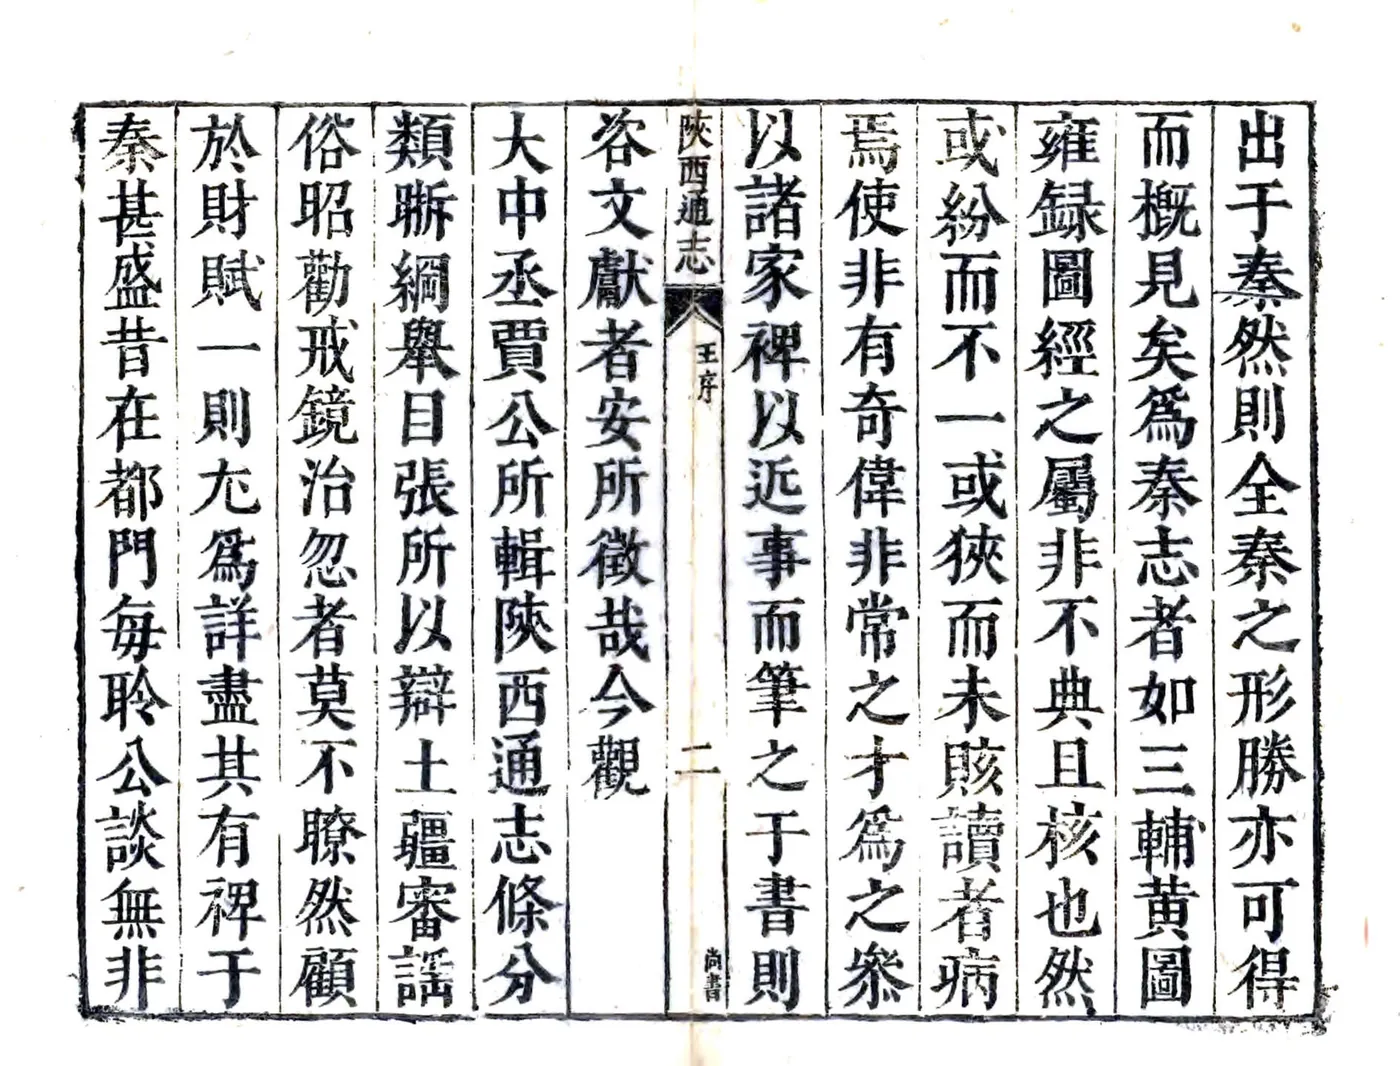 出于秦然則全秦之形勝亦可得
而概見矣爲秦志者如三輔黄圖
雍録圖經之屬非不典且核也然
或紛而不一或狹而未賅讀者病
焉使非有奇偉非常之才爲之叅
以諸家裨以近事而筆之于書則
陜西通志
王序
二
尚書
咨文獻者安所徵哉今觀
大中丞賈公所輯陜西通志條分
類晰綱舉目張所以辯土疆審謡
俗昭勸戒鏡治忽者莫不瞭然顧
於財賦一則尢爲詳盡其有裨于
秦甚盛昔在都門每聆公談無非